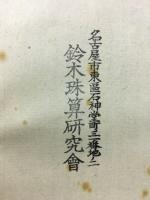 名古屋市東區石神堂町二番地ノ二
鈴木珠算研究會